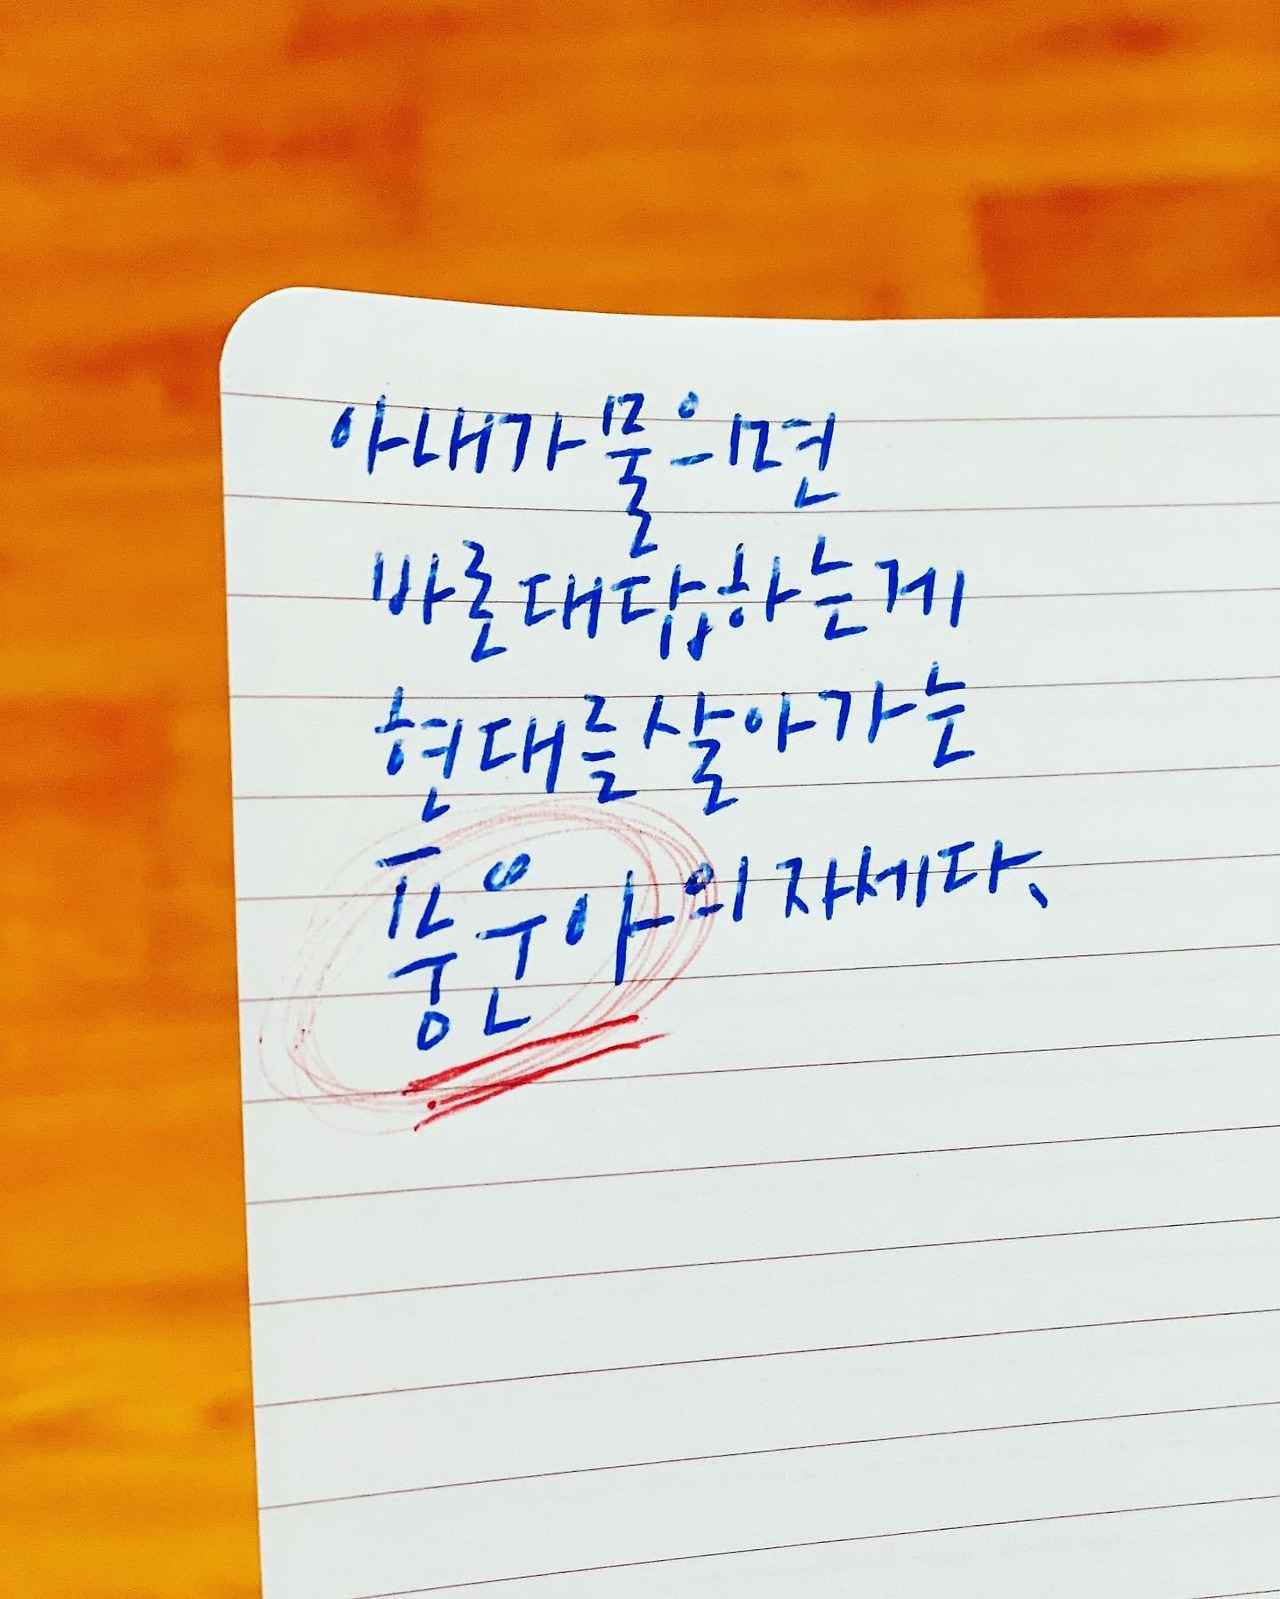 아내가 물으면
바로 대답하는게
현대를 살아가는
풍운아의 자세다.